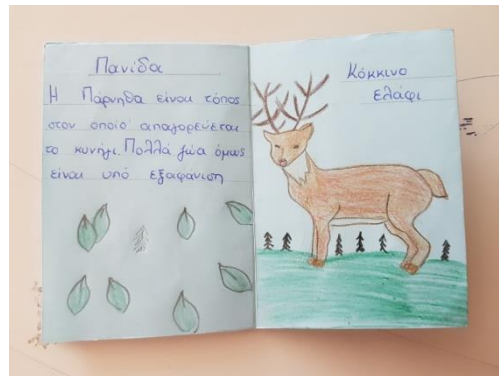 Πανίδα
Η Πάρνηθα είναι τόπος
στον οποίο απαγορεύεται
το κυνήγι. Πολλά ζώα όμως
είναι υπό εξαφανιση
Κόκκινο
ελάφι